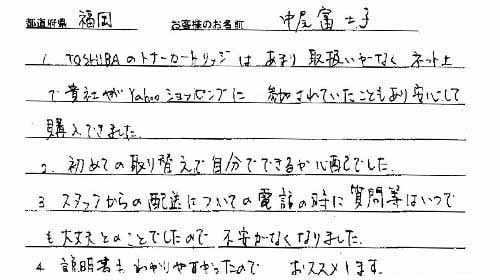 都道府県 福岡 お客様のお名前 中尾富士子
1. TOSHIBAのトナーカートリッジは あまり 取扱いがなく ネット上
で貴社がYahooショッピングに 参加されていたこともあり安心して
購入できました.
2. 初めての取り替えで自分でできるか心配でした.
3 スタッフからの配送についての電話の時に質問等はいつで
も大丈夫とのことでしたので 不安がなくなりました.
4 説明書もわかりやすかったので おススメします.